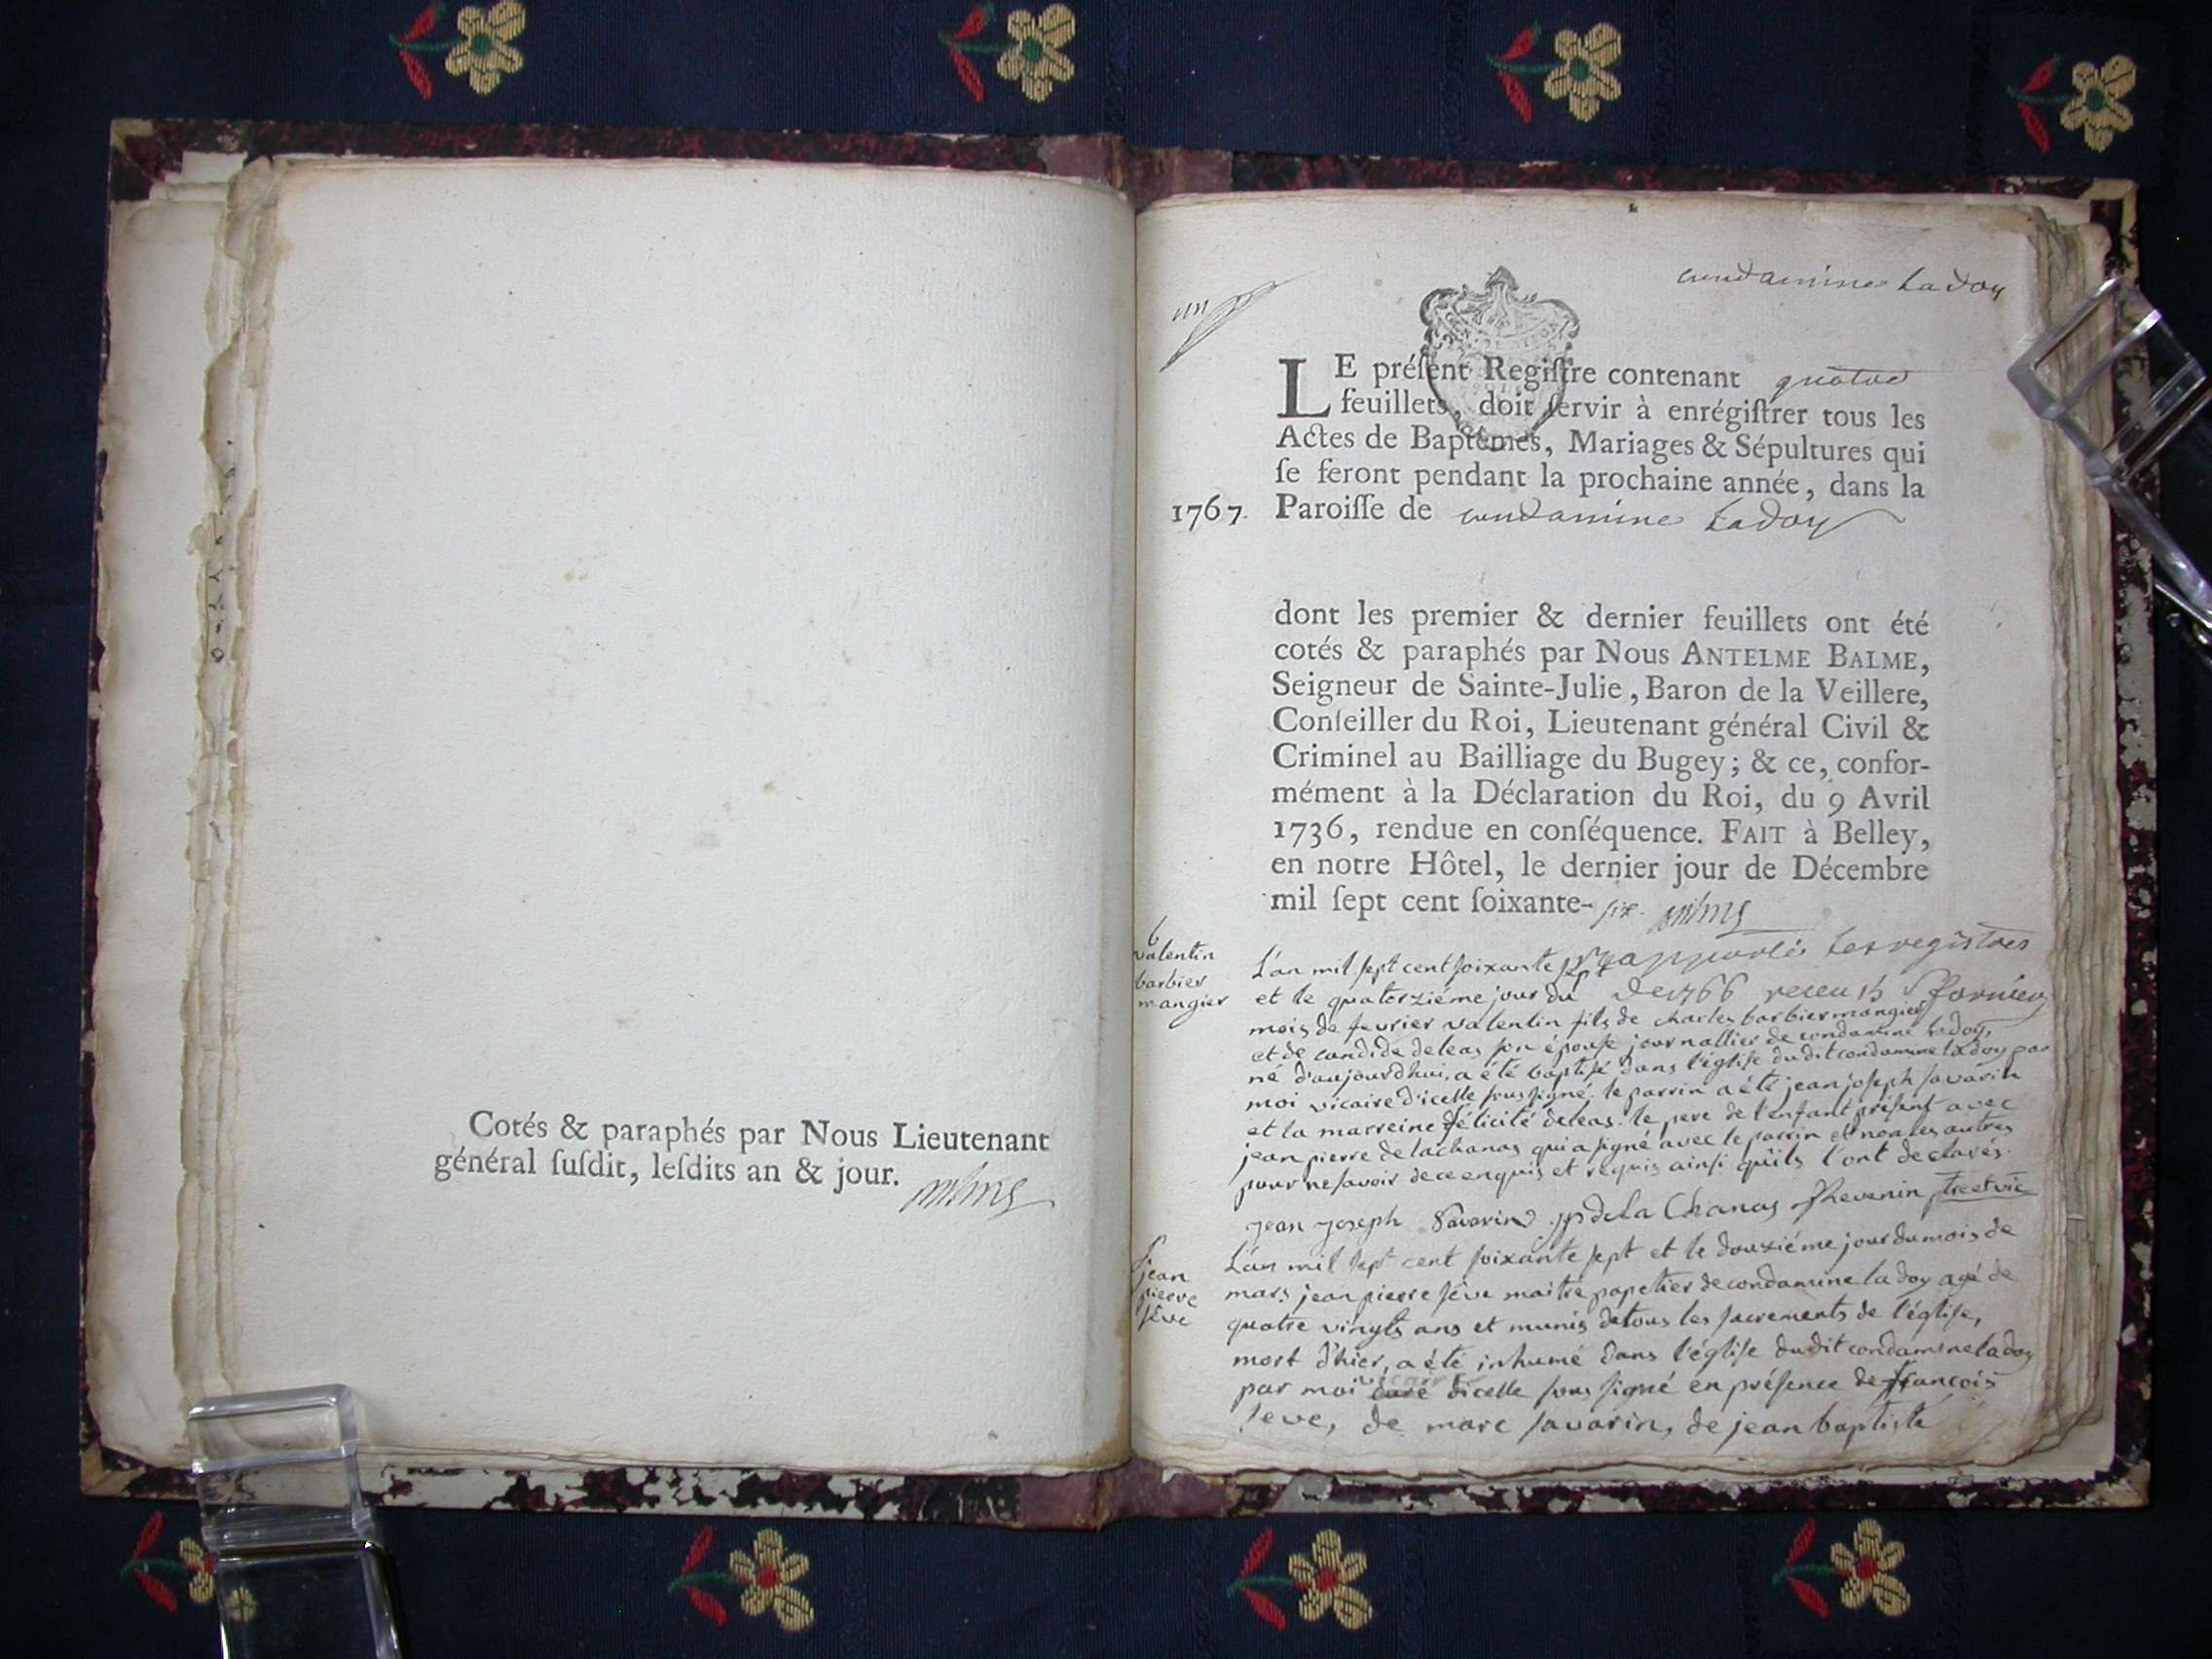 Cotés & paraphés par Nous Lieutenant
général ſuſdit, leſdits an & jour.
condamine Ladoy
un
LE préſent Regiſtre contenant quatre
feuillets, doit ſervir à enrégiſtrer tous les
Actes de Baptêmes, Mariages & Sépultures qui
ſe feront pendant la prochaine année, dans la
1767. Paroiſſe de condamine Ladoy
dont les premier & dernier feuillets ont été
cotés & paraphés par Nous ANTELME BALME,
Seigneur de Sainte-Julie, Baron de la Veillere,
Conſeiller du Roi, Lieutenant général Civil &
Criminel au Bailliage du Bugey; & ce, confor-
mément à la Déclaration du Roi, du 9 Avril
1736, rendue en conſéquence. FAIT à Belley,
en notre Hôtel, le dernier jour de Décembre
mil ſept cent ſoixante-ſix.
rapporté les registres
de 1766
b
valentin
barbier
mangier
L'an mil ſept cent ſoixante ſept
et le quatorziéme jour du
mois de fevrier valentin fils de charles barbier mangier
et de candide deleas ſon épouſe journallier de condamine ladoy,
né d'aujourdhui, a été baptiſé dans l'égliſe dudit condamine ladoy par
moi vicaire d'icelle ſousſigné. le parrin a été jean joſeph ſavarin
et la marreine félicité deleas. le pere de l'enfant préſent avec
jean pierre de lachanas qui a ſigné avec le parrin et non les autres
pour ne ſavoir de ce enquis et requis ainſi qu'ils l'ont declarés.
jean joseph Savarin jp de la Chanas Thevenin ptre et vic
ſ
jean
pierre
ſéve
L'an mil ſept cent ſoixante ſept et le douziéme jour du mois de
mars jean pierre ſéve maitre papetier de condamine la doy agé de
quatre vingts ans et munis de tous les ſacrements de l'égliſe,
mort d'hier, a été inhumé dans l'égliſe dudit condamine la doy
par moi vicaire dicelle ſous ſigné en préſence de francois
ſeve, de marc ſavarin, de jean baptiste